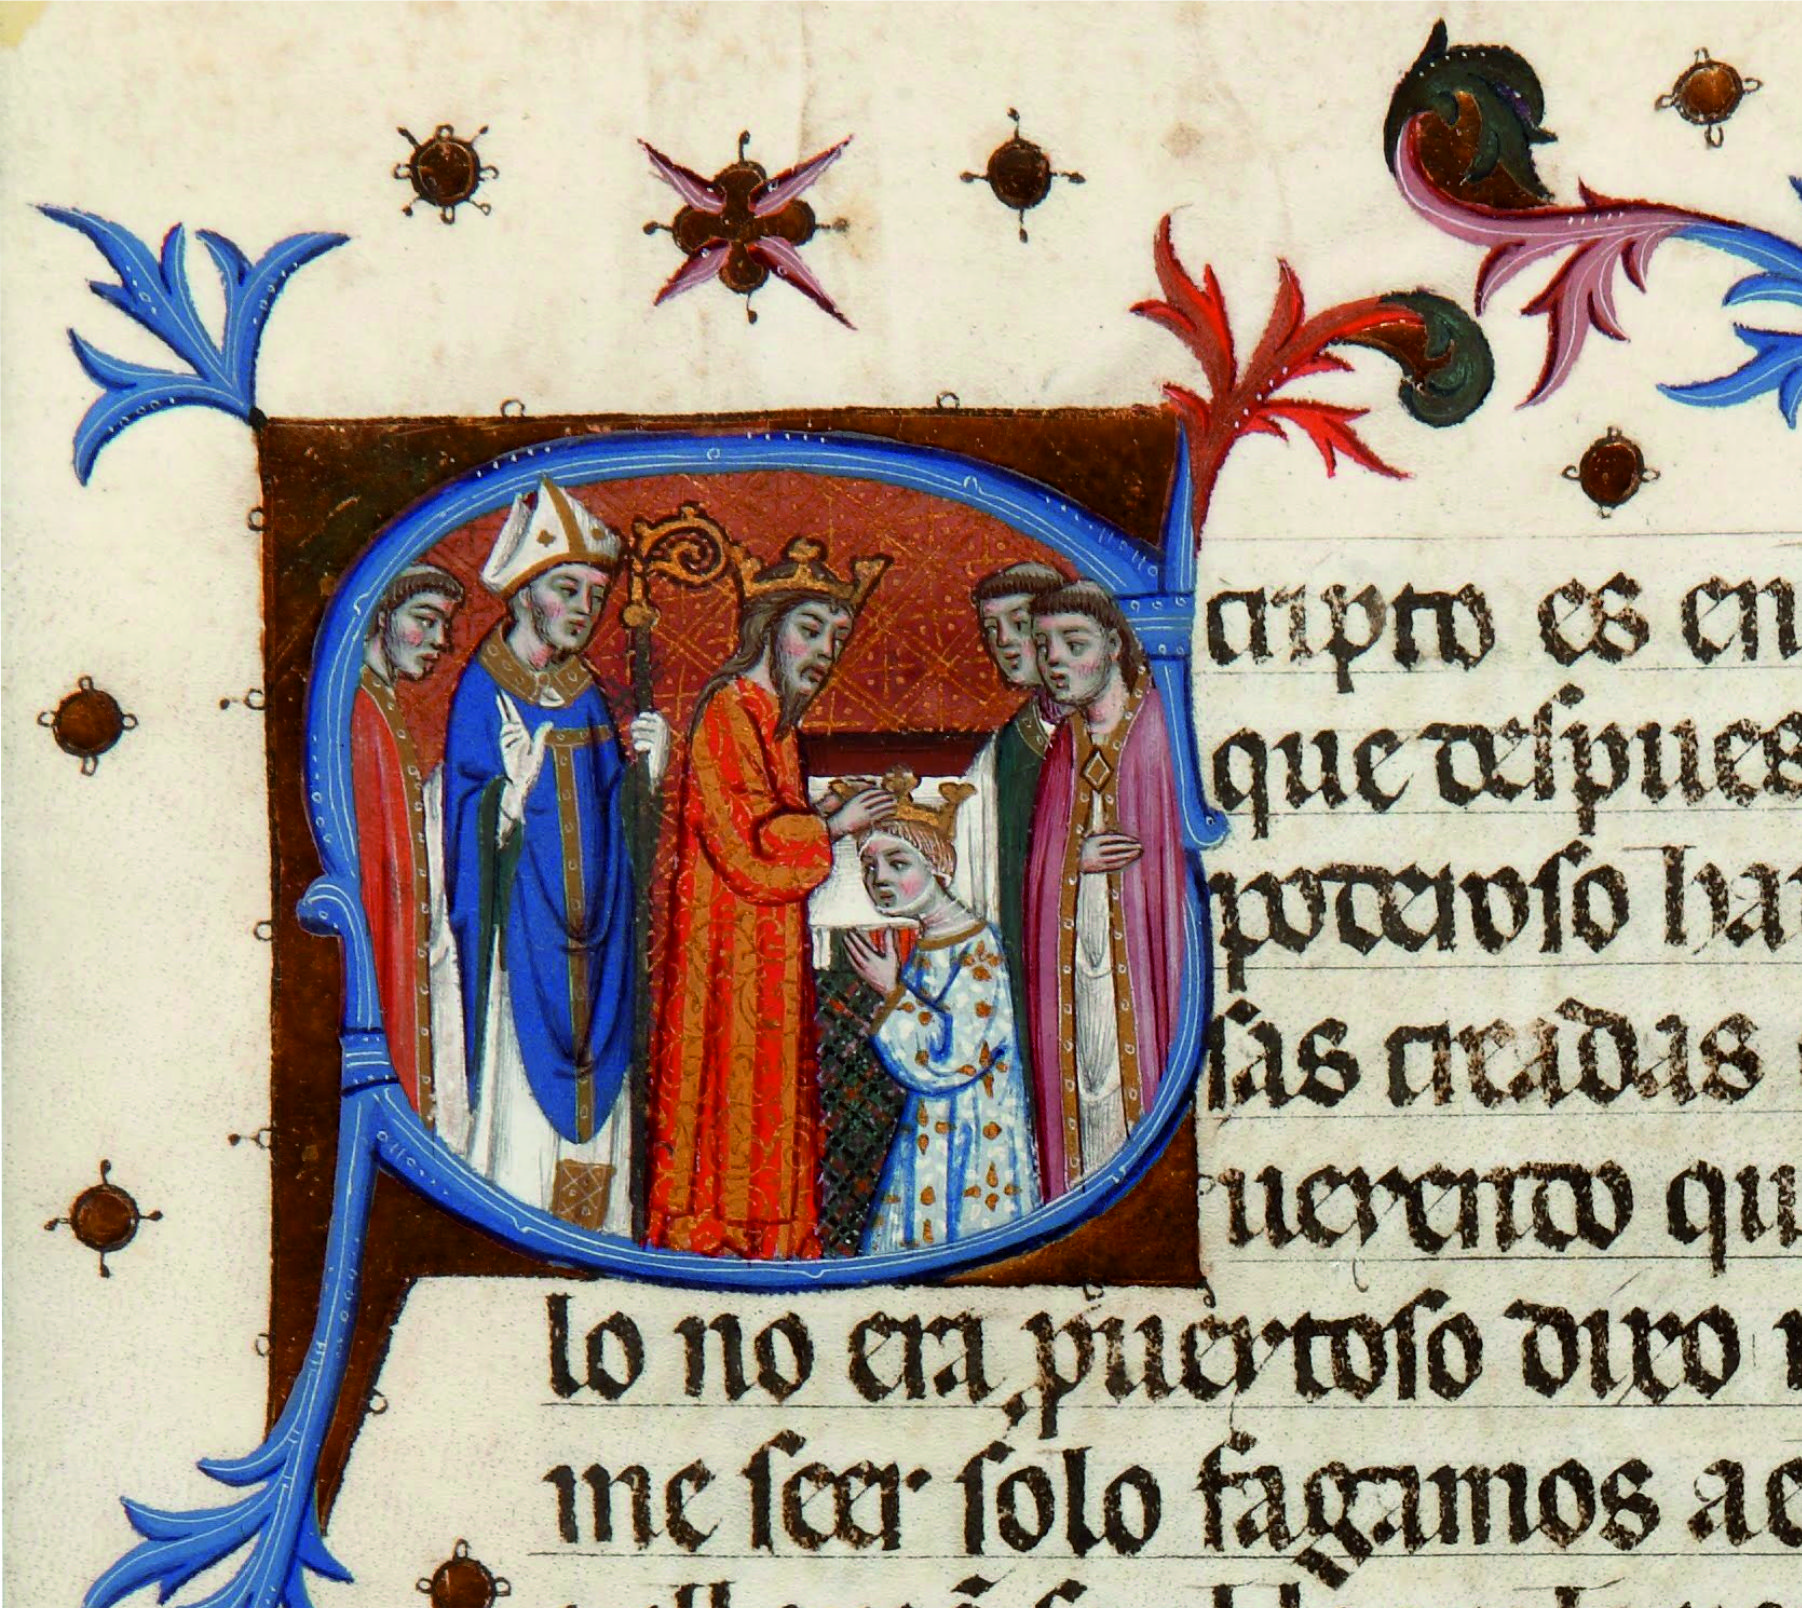 Scripto es en
que despues
poderoso hau
sas creadas
ueyendo qu
lo no era pueytoso dixo
me seer solo fagamos